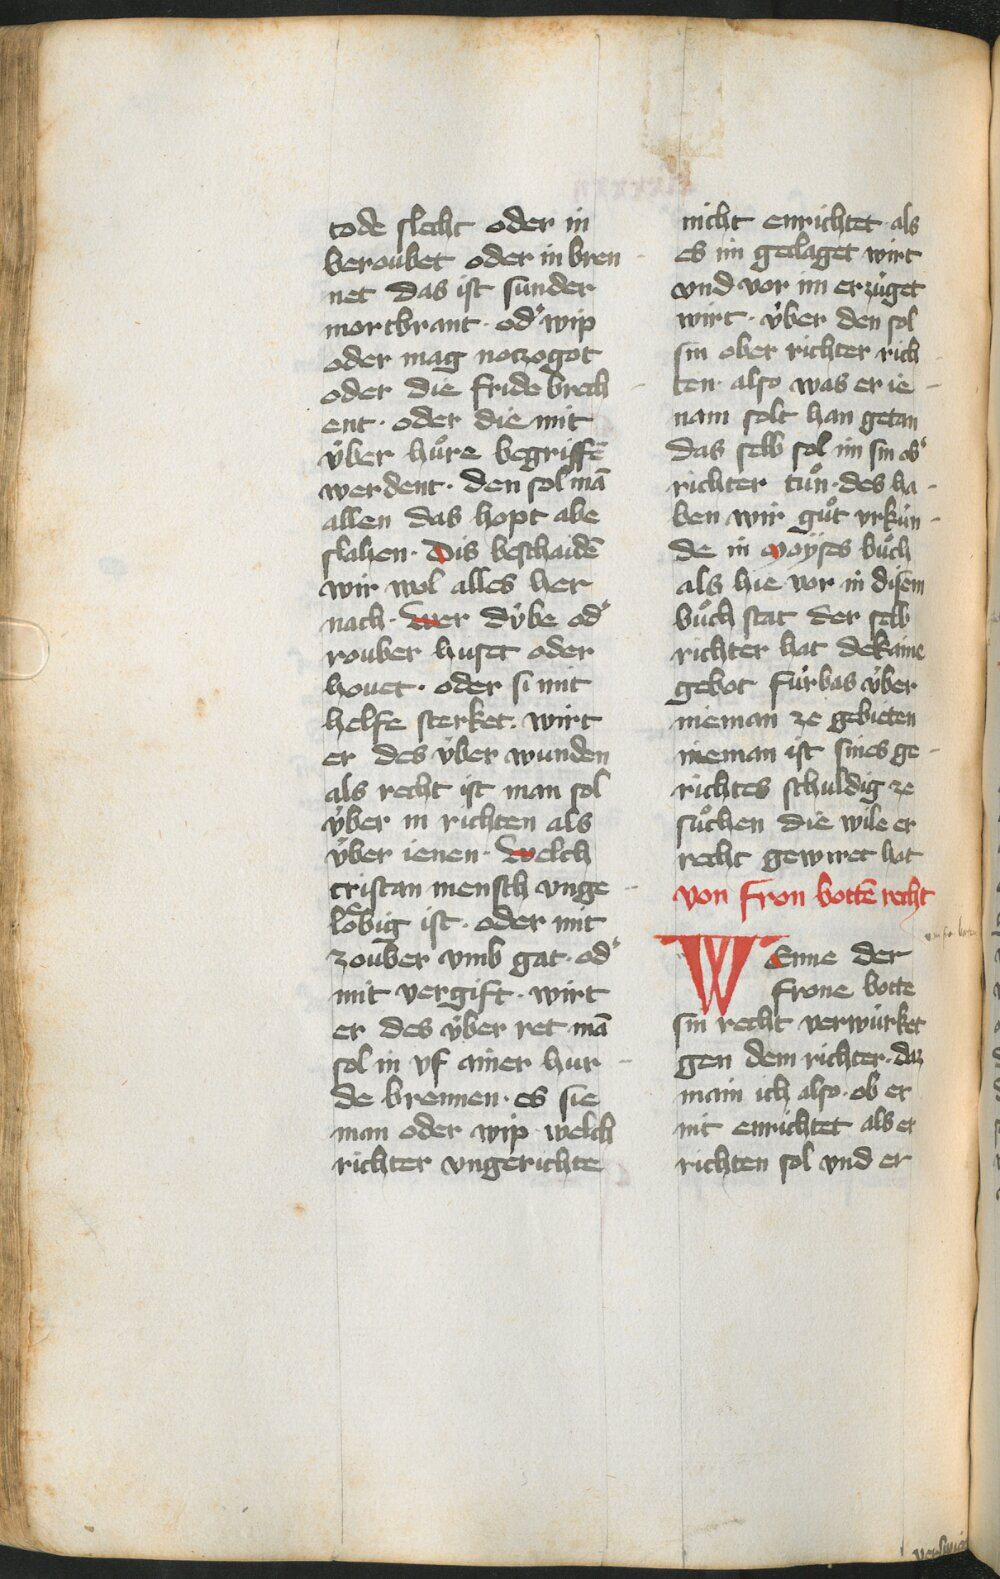 tode slecht oder in
beroubet oder in bren
net das ist sunder
mortbrant · od' wip
oder mag notzogot
oder die fride brech
ent · oder die mit
v́ber hůre begriffē
werdent · den sol mā
allen das hopt abe
slahen · Dis beschaidē
wir wol alles her
nach · Wer dv́be od'
rouber huset oder
houet · oder si mit
helfe sterket · wirt
er des v́ber wunden
als recht ist man sol
v́ber in richten als
v́ber ienen · Welch
cristan mensch vnge
loͤbig ist · oder mit
zouber vmb gat · od'
mit vergift · wirt
er des v́ber ret mā
sol in vf ainer hur
de brennen · es sie
man oder wip welch
richter vngerichte
nicht enrichtet als
es im geclaget wirt
vnd vor im erzúget
wirt · v́ber den sol
sin ober richter rich
ten · also was er ie
nam solt han getan
das selb sol im sin ob'
richter tůn · des ha
ben wir gůt vrkún
de in moyses bůch
als hie vor in disem
bůch stat der selb
richter hat dekaine
gebot fúrbas v́ber
nieman ze gebieten
nieman ist sines ge
richtes schuldig ze
sůchen die wile er
recht gewiret hat
von fron bottē recht
Wenne der
frone botte
sin recht verwúrket
gen dem richter · daz
main ich also · ob er
nit enrichtet als er
richten sol vnd er